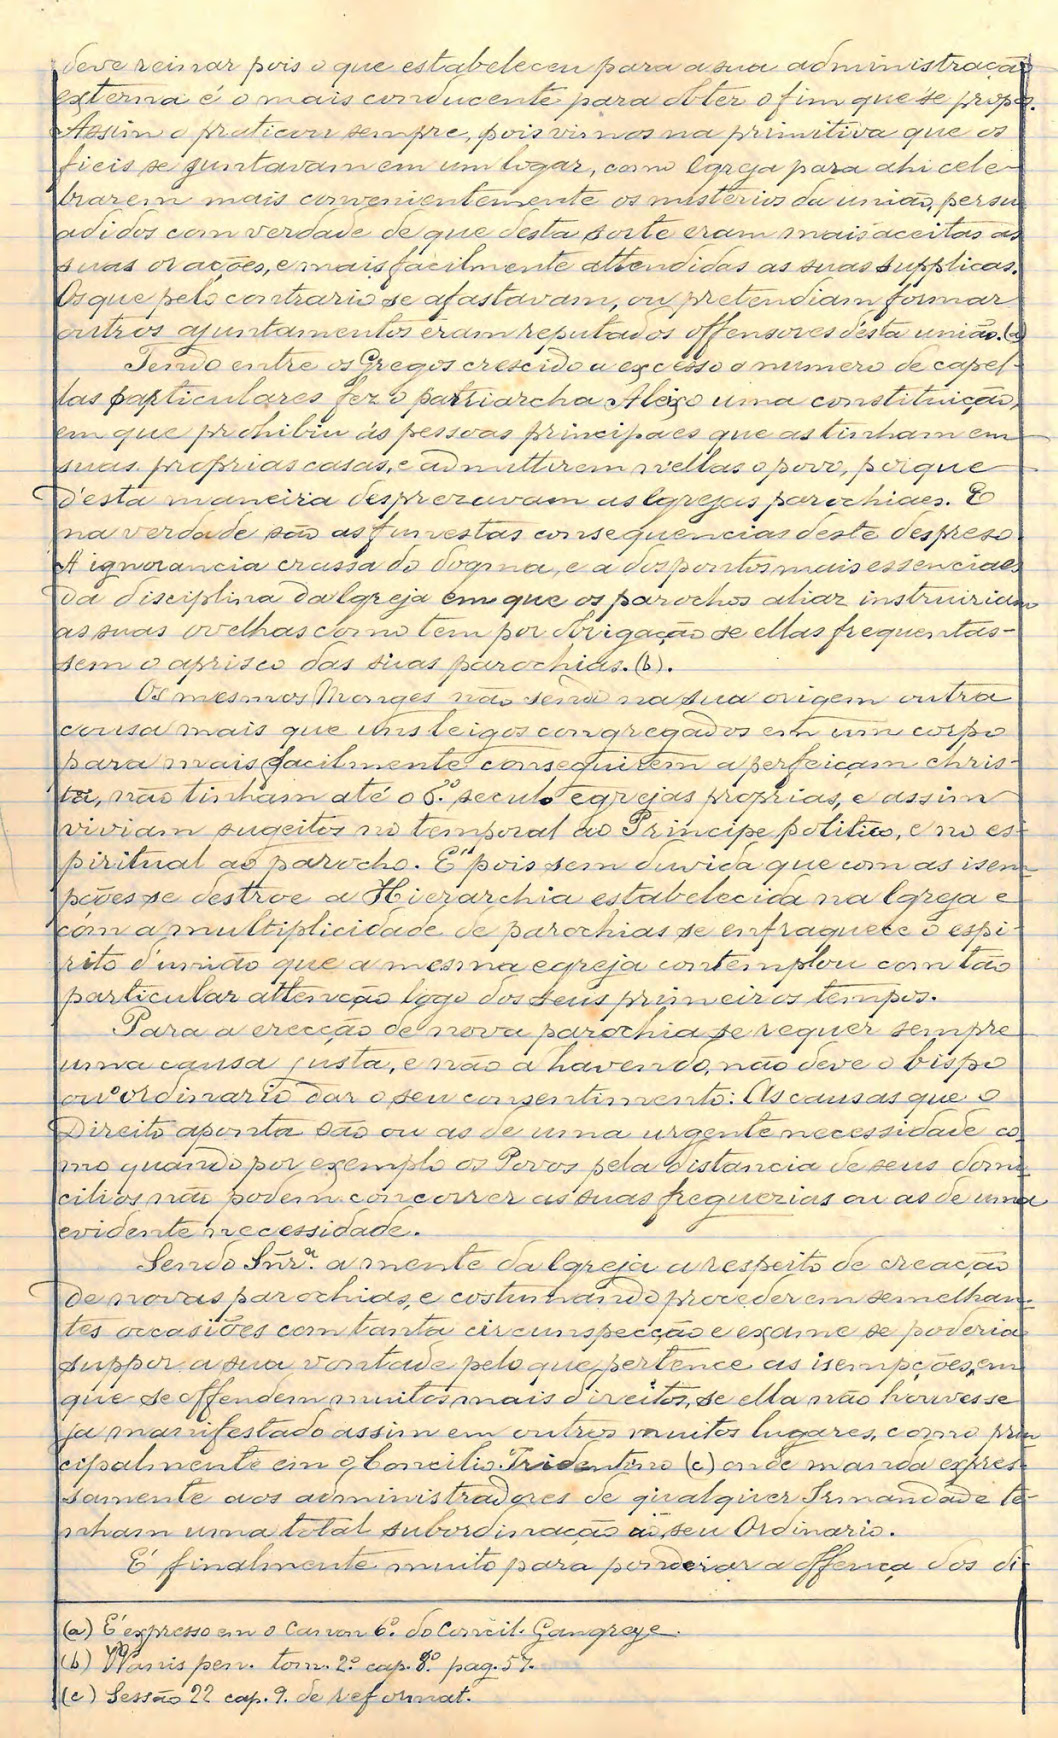 deve reinar pois o que estabeleceu para a sua administração
externa é o mais conducente para obter o fim que se propoz.
Assim o praticou sempre, pois vimos na primitiva que os
fieis se juntavam em um logar, como Igreja para ahi cele-
brarem mais convenientemente os misterios da união, persu
adidos com verdade de que desta sorte eram mais aceitas as
suas orações, e mais facilmente attendidas as suas supplicas.
Os que pelo contrario se afastavam, ou pretendiam formar
outros ajuntamentos eram reputados offensores d'esta união. (a)
Tendo entre os Gregos crescido a excesso o numero de capel-
las particulares fez o patriarcha Aleixo uma constituição,
em que prohibiu ás pessoas principaes que as tinham em
suas proprias casas, e admittirem n'ellas o povo, porque
d'esta maneira desprezavam as Igrejas parochiaes. E
na verdade são as funestas consequencias deste despreso
A ignorancia crassa do dogma, e a dos pontos mais essenciaes
da disciplina da Igreja em que os parochos aliaz instruiriam
as suas ovelhas como tem por obrigação se ellas frequentas-
sem o aprisco das suas parochias. (b).
Os mesmos Monges não sendo na sua origem outra
cousa mais que uns leigos congregados em um corpo
para mais facilmente conseguirem a perfeiçam chris-
tã, não tinham até o 6.º seculo egrejas proprias, e assim
viviam sugeitos no temporal ao Principe politico, e no es-
piritual ao parocho. É pois sem duvida que com as isem-
pções se destroe a Hierarchia estabelecida na Igreja e
com a multiplicidade de parochias se enfraquece o espi-
rito d'união que a mesma egreja contemplou com tão
particular attencção logo dos seus primeiros tempos.
Para a erecção de nova parochia se requer sempre
uma causa justa, e não a havendo, não deve o bispo
ou o ordinario dar o seu consentimento: As causas que o
Direito aponta são ou as de uma urgente necessidade co
mo quando por exemplo os Povos pela distancia de seus domi
cilios não podem concorrer as suas freguezias ou as de uma
evidente necessidade.
Sendo Snr.ª a mente da Igreja a respeito de creação
de novas parochias, e costumando proceder em semelhan-
tes occasiões com tanta circunspecção e exame se poderia
suppor a sua vontade pelo que pertence as isempções, em
que se offendem muitos mais direitos, se ella não houvesse
ja manifestado assim em outros muitos lugares, como prin
cipalmente em o Concilio Tridentino (c) onde manda expres-
samente aos administradores de qualquer Irmandade te-
nham uma total subordinação ao seu Ordinario.
É finalmente muito para ponderar a offença dos di-
(a) É expresso em o Canon 6º. do Concil. Gangreje.
(b) pen. tom. 2º cap. 8º. pag. 57.
(c) Sessão 22 cap. 9. de reformat.